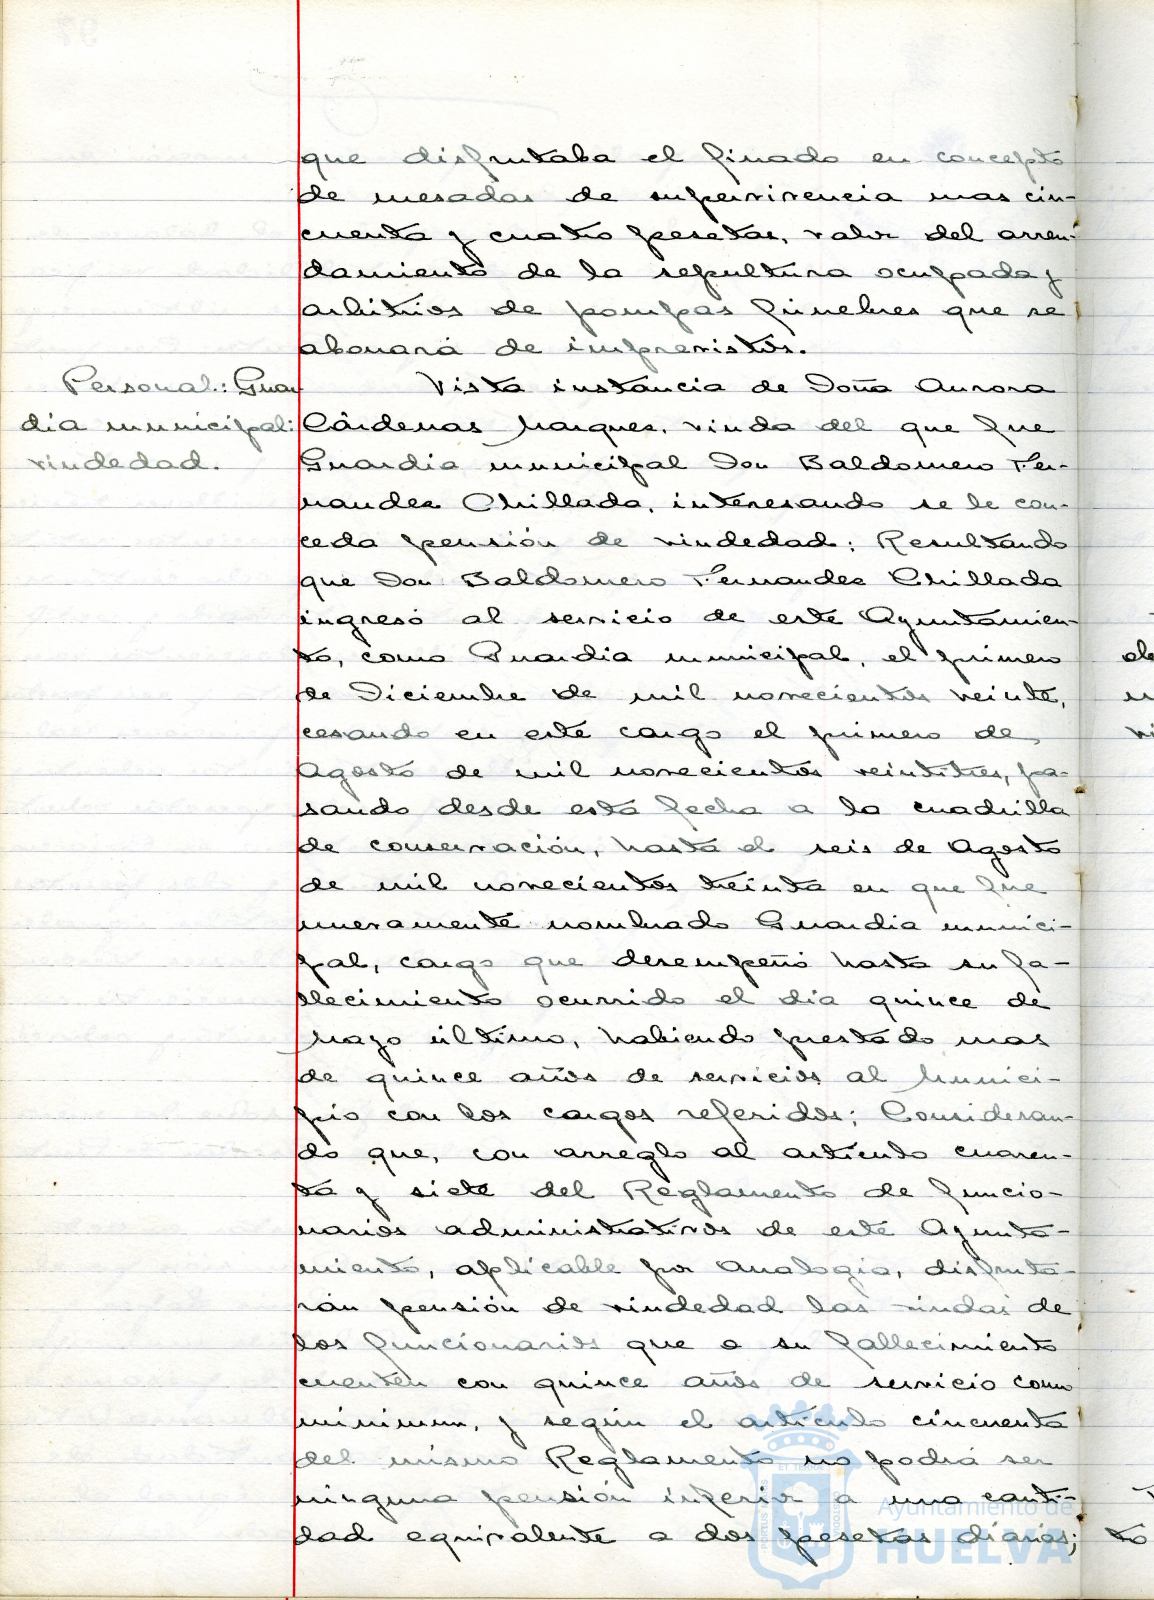 que disfrutaba el finado en concepto
de mesadas de supervivencia mas cin-
cuenta y cuatro pesetas, valor del arren-
damiento de la sepultura ocupada y
arbitrios de pompas fúnebres que se
abonará de imprevistos.
Personal: Guar
dia municipal:
viudedad.
Vista instancia de Doña Aurora
Cárdenas Marques, viuda del que fue
Guardia municipal Don Baldomero Fer-
nandez Chillada, interesando se le con-
ceda pensión de viudedad; Resultando
que Don Baldomero Fernandez Chillada
ingresó al servicio de este Ayuntamien-
to, como Guardia municipal, el primero
de Diciembre de mil novecientos veinte,
cesando en este cargo el primero de
Agosto de mil novecientos veintitres, pa-
sando desde esta fecha a la cuadrilla
de conservación, hasta el seis de Agosto
de mil novecientos treinta en que fue
nueramente nombrado Guardia munici-
pal, cargo que desempeñó hasta su fa-
llecimiento ocurrido el dia quince de
Mayo último, habiendo prestado mas
de quince años de servicios al Munici-
pio con los cargos referidos; Consideran-
do que, con arreglo al articulo cuaren-
ta y siete del Reglamento de funcio-
narios administrativos de este Ayunta-
miento, aplicable por analogia, disfruta-
rán pensión de viudedad las viudas de
los funcionarios que a su fallecimiento
cuenten con quince años de servicio como
minimum, y según el articulo cincuenta
del mismo Reglamento no podrá ser
ninguna pensión inferior a una canti-
dad equivalente a dos pesetas diarias;
Ayuntamiento de
HUELVA